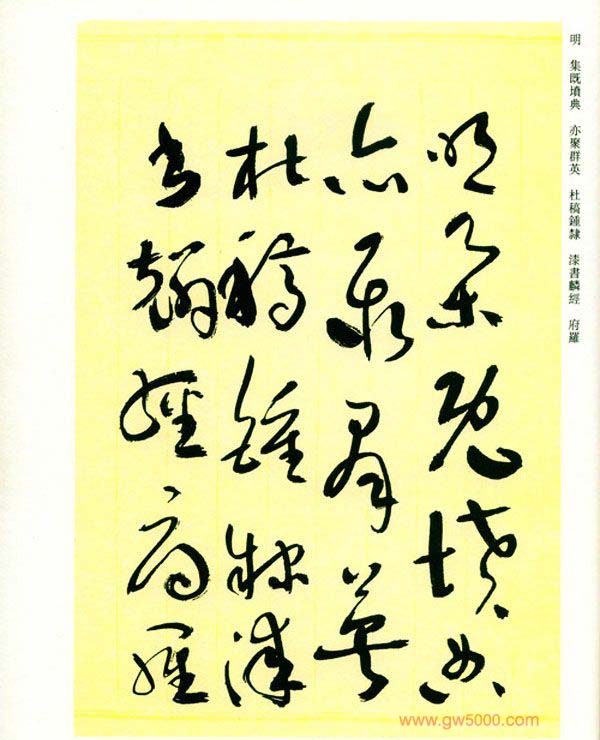 明　集既墳典　亦聚群英　杜稿鍾隸　漆書麟經　府羅
明集既墳典
亦聚群英
杜稿鍾隸漆
書經府羅
www.gw5000.com